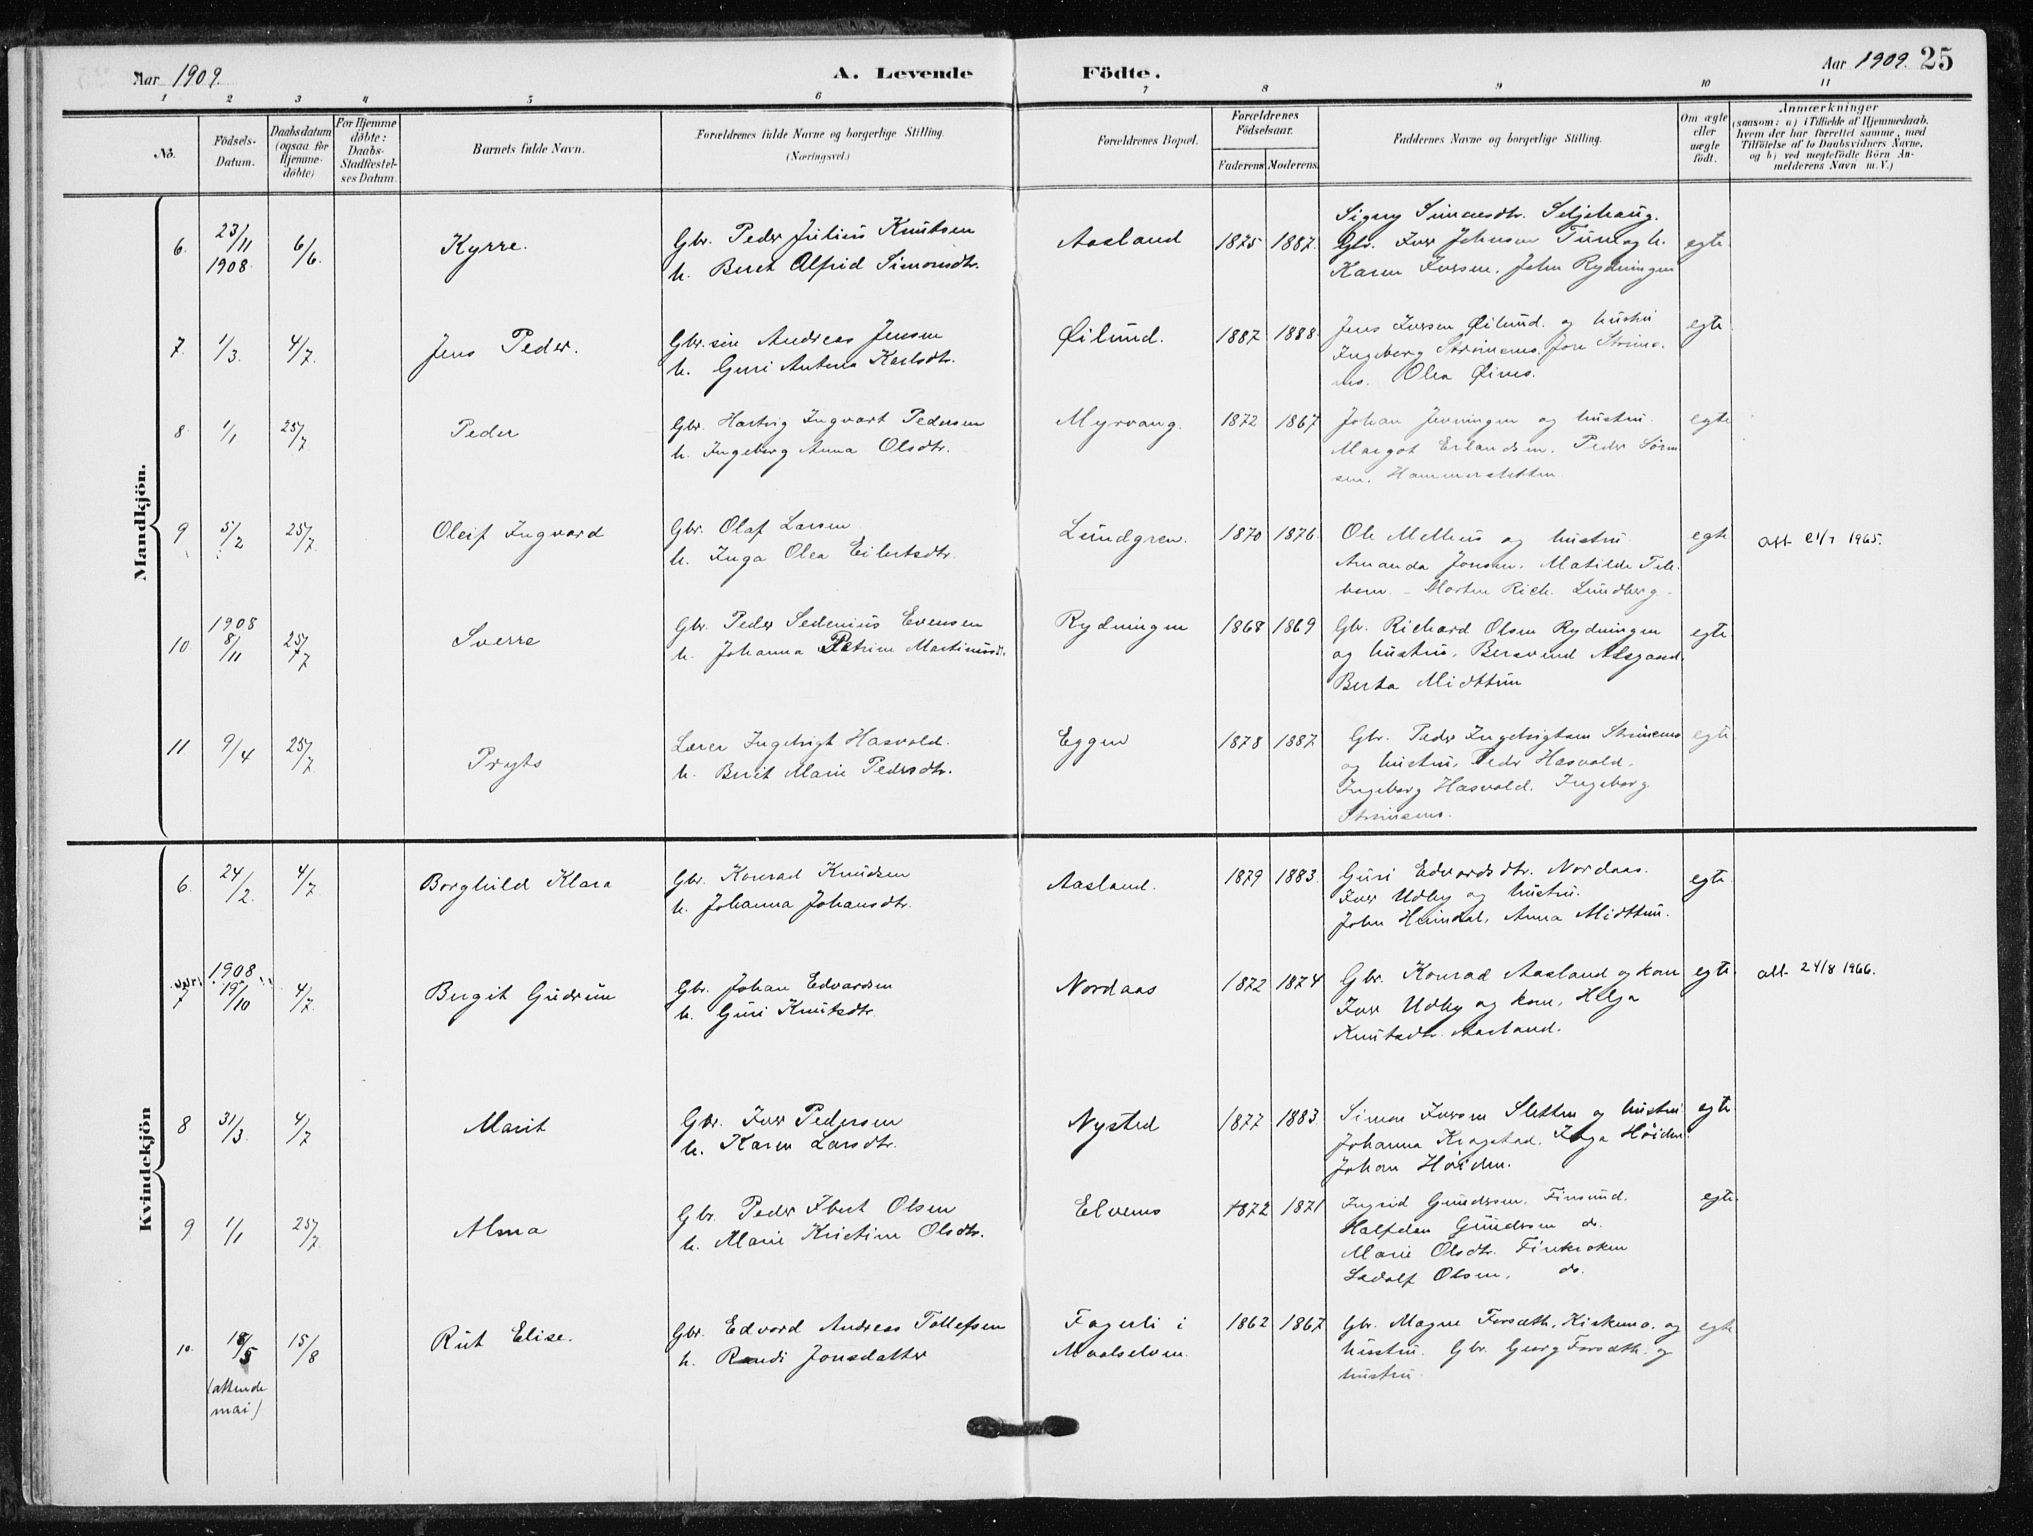 Aar 1909. A. Levende Födte. Aar 1909. 25
1 2 3 4 5 6 7 8 9 10 11
No. Födsels-Datum. Daabsdatum (ogsaa for Hjemme-döbte) For Hjemme döbte: Daabs-Stadfæstel-ses Datum. Barnets fulde Navn. Forældrenes fulde Navne og borgerlige Stilling. (Næringsvei.) Forældrenes Bopæl. Forældrenes Födselsaar. Faderens Moderens Faddernes Navne og borgerlige Stilling. Om ægte eller uægte födt. Anmærkninger (saasom: a) i Tilfælde af Hjemmedaab, hvem der har forrettet samme, med Tilföielse af to Daabsvidners Navne, og b) ved uægtefödte Börn An-melderens Navn m. V.)
Mandkjön.
6. 23/11 1908. 6/6. Kyrre. Gbr. Peder Julius Knutsen Aasland 1875 1887. Signy Simonsdtr. Seljehaug. egte
h. Beret Alfrid Simonsdtr. Gbr. Iver Johnsen Tune og h.
Karen Iversen, John Rydningen
7. 1/3. 4/7. Jens Peder. Gbr. søn Andreas Jensen Øilund. 1887 1888 Jens Iversen Øilund. og hustru egte
h. Guri Antona Karlsdtr. Ingeborg Strømsmo. Jon Strøms-
mo. Olea Øimo.
8. 1/1 25/7 Peder Gbr. Hartvig Ingvart Pedersen Myrvang. 1872 1867 Johan Jenningen og hustru. egte
h. Ingeborg Anna Olsdtr. Margot Erlandsen. Peder Søren
sen. Hammersletten
9 5/2 25/7. Oleif Ingvard Gbr. Olaf Larsen Lundgren. 1870 1876. Ole Melhus og hustru egte
h. Inga Olea Eilertsdtr. Amanda Jonsen. Matilde
Morten Rich. Lundberg
10 1908 8/11 25/7 Sverre Gbr. Peder Sedenius Evensen Rydningen 1868 1869 Gbr. Richard Olsen Rydningen egte
h. Johanna Petrine Martinusdtr. og hustru. Bersvend
Berta Midttun
11 9/4 25/7. Pryts Lærer Ingebrigt Hasvold. Eggen 1878 1887 Gbr. Peder Ingebrigtsen Strømsmo egte
h. Berit Marie Pedersdtr. og hustru, Peder Hasvold.
Ingeborg Hasvold. Ingeborg
Strømsmo.
Kvindekjön
6. 24/2. 4/7. Borghild Klara Gbr. Konrad Knudsen Aasland. 1879 1883. Guri Edvardsdtr. Nordaas. egte
h. Johanna Johansdtr. Iver Udby og hustru.
John Heimdal, Anna Midttun.
7 1908 19/10 4/7. Bergit Gudrun Gbr. Johan Edvardsen Nordaas 1872 1874 Gbr. Konrad Aasland og kone egte att. 24/8 1966.
h. Guri Knutsdtr. Iver Udby og kone, Helga
Knutsdtr. Aasland.
8 31/3. 4/7 Marit Gbr. Iver Pedersen Nysted 1877 1883. Simon Iversen Sletten og hustru egte
h. Karen Larsdtr. Johanna Krogstad. Inga Høiden.
Johan Høiden.
9 1/1 25/7. Alma Gbr. Peder Ebert Olsen Elvemo 1872 1871 Ingrid Gundersen. Finsund. egte.
h. Marie Kristine Olsdtr. Halfdan Gundersen do.
Marie Olsdtr. Finkroken
Ladolf Olsen. do.
10. 18/5 15/8 Rut Elise. Gbr. Edvard Andreas Tollefsen Fagerli i 1862 1867 Gbr. Magne Forseth, Kirkemo, og egte
h. Randi Jonsdatter Maalselven. hustru. Gbr. Georg Forseth. og
(attende hustru.
mai)